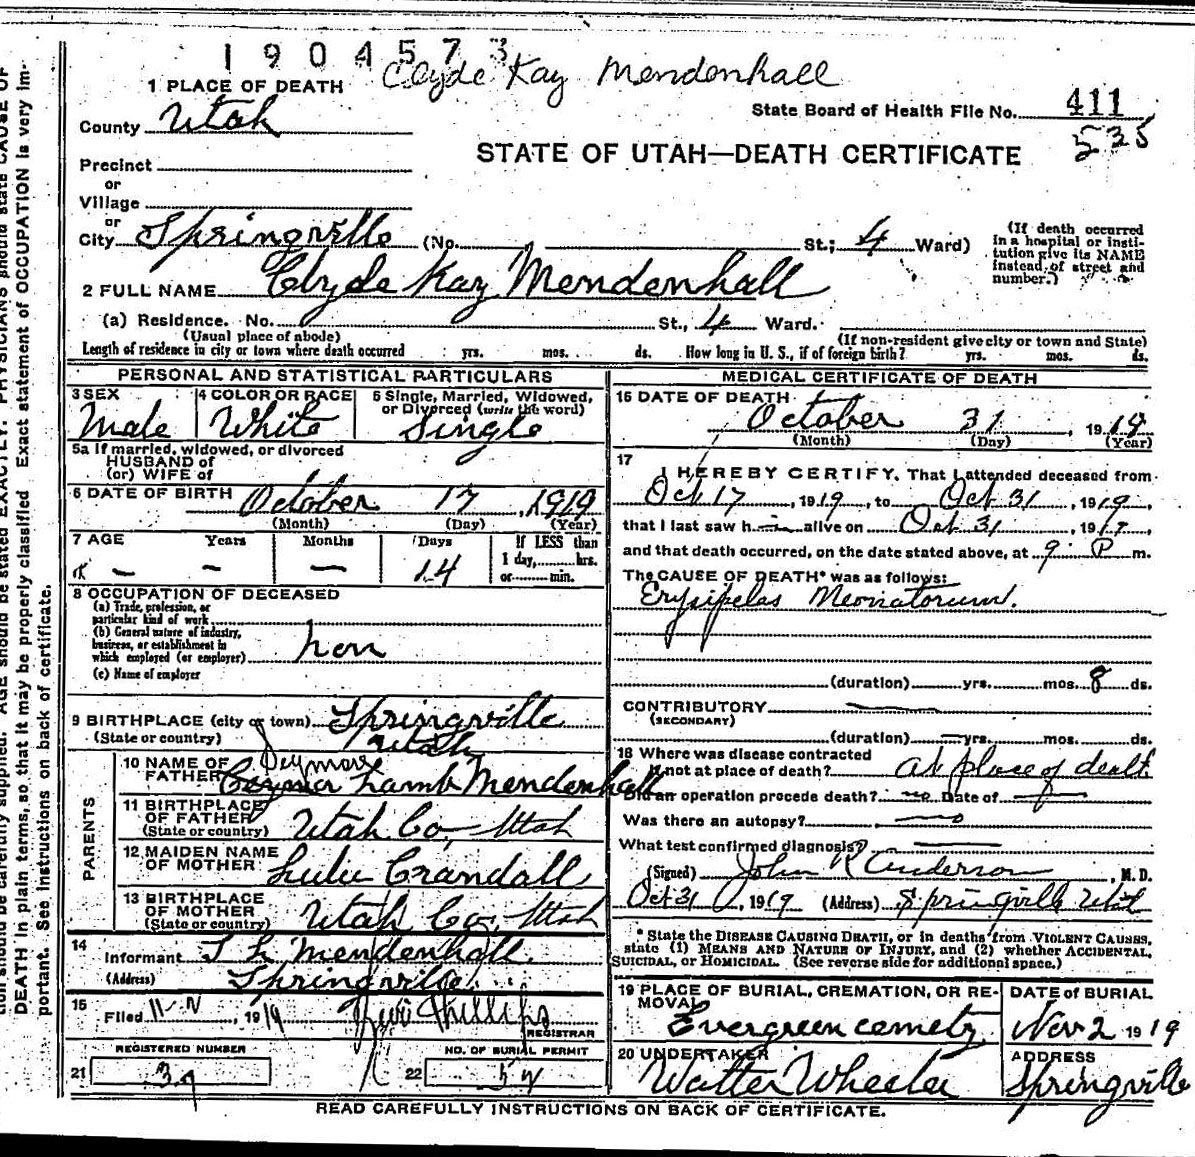 1904573
Clyde Kay Mendenhall
1 PLACE OF DEATH
State Board of Health File No. 411
County Utah
535
STATE OF UTAH—DEATH CERTIFICATE
Precinct
or
Village
or
City Springville (No. St.; 4 Ward)
(If death occurred
in a hospital or insti-
tution give its NAME
instead of street and
number.)
2 FULL NAME Clyde Kay Mendenhall
(a) Residence. No. St., 4 Ward.
(Usual place of abode)
(If non-resident give city or town and State)
Length of residence in city or town where death occurred yrs. mos. ds. How long in U. S., if of foreign birth? yrs. mos. ds.
PERSONAL AND STATISTICAL PARTICULARS
3 SEX
Male
4 COLOR OR RACE
White
5 Single, Married, Widowed,
or Divorced (write the word)
Single
5a If married, widowed, or divorced
HUSBAND of
(or) WIFE of
6 DATE OF BIRTH October 17, 1919
(Month) (Day) (Year)
7 AGE Years Months Days If LESS than
1 day, hrs.
or min.
— — — 14
8 OCCUPATION OF DECEASED
(a) Trade, profession, or
particular kind of work
(b) General nature of industry,
business, or establishment in
which employed (or employer) non
(c) Name of employer
9 BIRTHPLACE (city or town) Springville
(State or country) Utah
PARENTS
10 NAME OF
FATHER Seymore Lamb Mendenhall
11 BIRTHPLACE
OF FATHER
(State or country) Utah Co, Utah
12 MAIDEN NAME
OF MOTHER Lulu Crandall
13 BIRTHPLACE
OF MOTHER
(State or country) Utah Co. Utah
14
Informant S L Mendenhall
(Address) Springville
15
Filed 11-2, 1919 Phillips
REGISTRAR
REGISTERED NUMBER
21 39
NO. OF BURIAL PERMIT
22 52
MEDICAL CERTIFICATE OF DEATH
16 DATE OF DEATH
October 31, 1919
(Month) (Day) (Year)
17
I HEREBY CERTIFY, That I attended deceased from
Oct 17, 1919, to Oct 31, 1919,
that I last saw him alive on Oct 31, 1919,
and that death occurred, on the date stated above, at 9 P m.
The CAUSE OF DEATH* was as follows:
Erysipelas Neonatorum.
(duration) yrs. mos. 8 ds.
CONTRIBUTORY —
(SECONDARY)
(duration) — yrs. mos. ds.
18 Where was disease contracted
if not at place of death? at place of death
Did an operation precede death? no Date of —
Was there an autopsy? no
What test confirmed diagnosis? —
(Signed) John R Anderson, M. D.
Oct 31, 1919 (Address) Springville Utah
* State the DISEASE CAUSING DEATH, or in deaths from VIOLENT CAUSES,
state (1) MEANS AND NATURE OF INJURY, and (2) whether ACCIDENTAL,
SUICIDAL, or HOMICIDAL. (See reverse side for additional space.)
19 PLACE OF BURIAL, CREMATION, OR RE-
MOVAL
Evergreen cemety
DATE of BURIAL
Nov 2 1919
20 UNDERTAKER
Walter Wheeler
ADDRESS
Springville
READ CAREFULLY INSTRUCTIONS ON BACK OF CERTIFICATE.
tion should be carefully supplied. AGE should be stated EXACTLY. PHYSICIANS should state CAUSE OF
DEATH in plain terms, so that it may be properly classified. Exact statement of OCCUPATION is very im-
portant. See instructions on back of certificate.